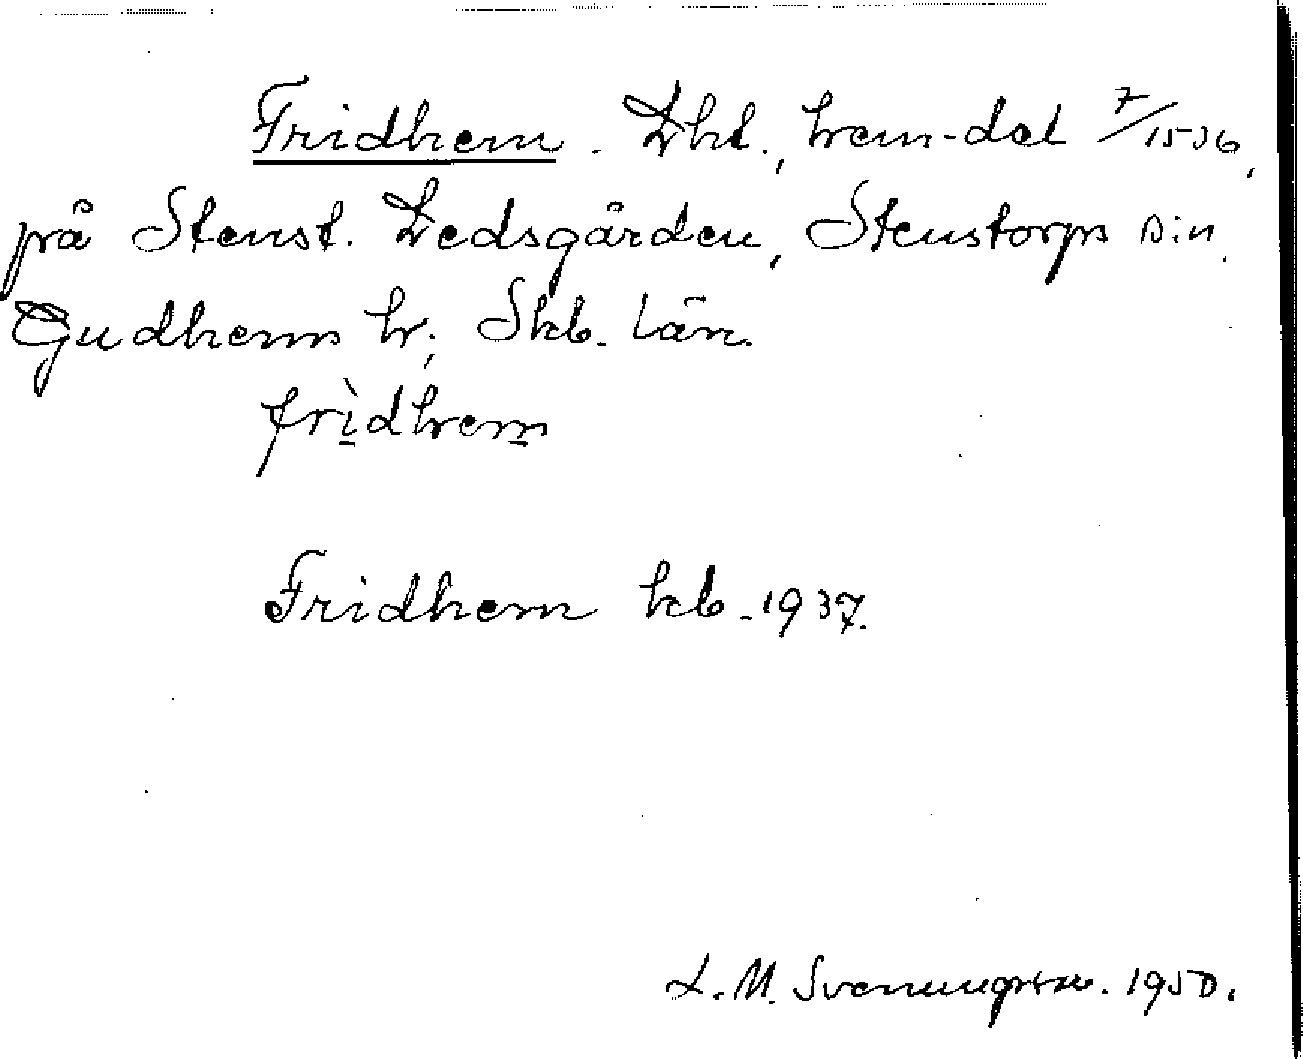 Fridhem. Lht., hem-del 7/1536,
på Stenst. Ledsgården, Stenstorps sn.
Gudhems hr; Skb. län.
fridhem
Fridhem kb. 1937.
L. M. Svenungsson. 1950.